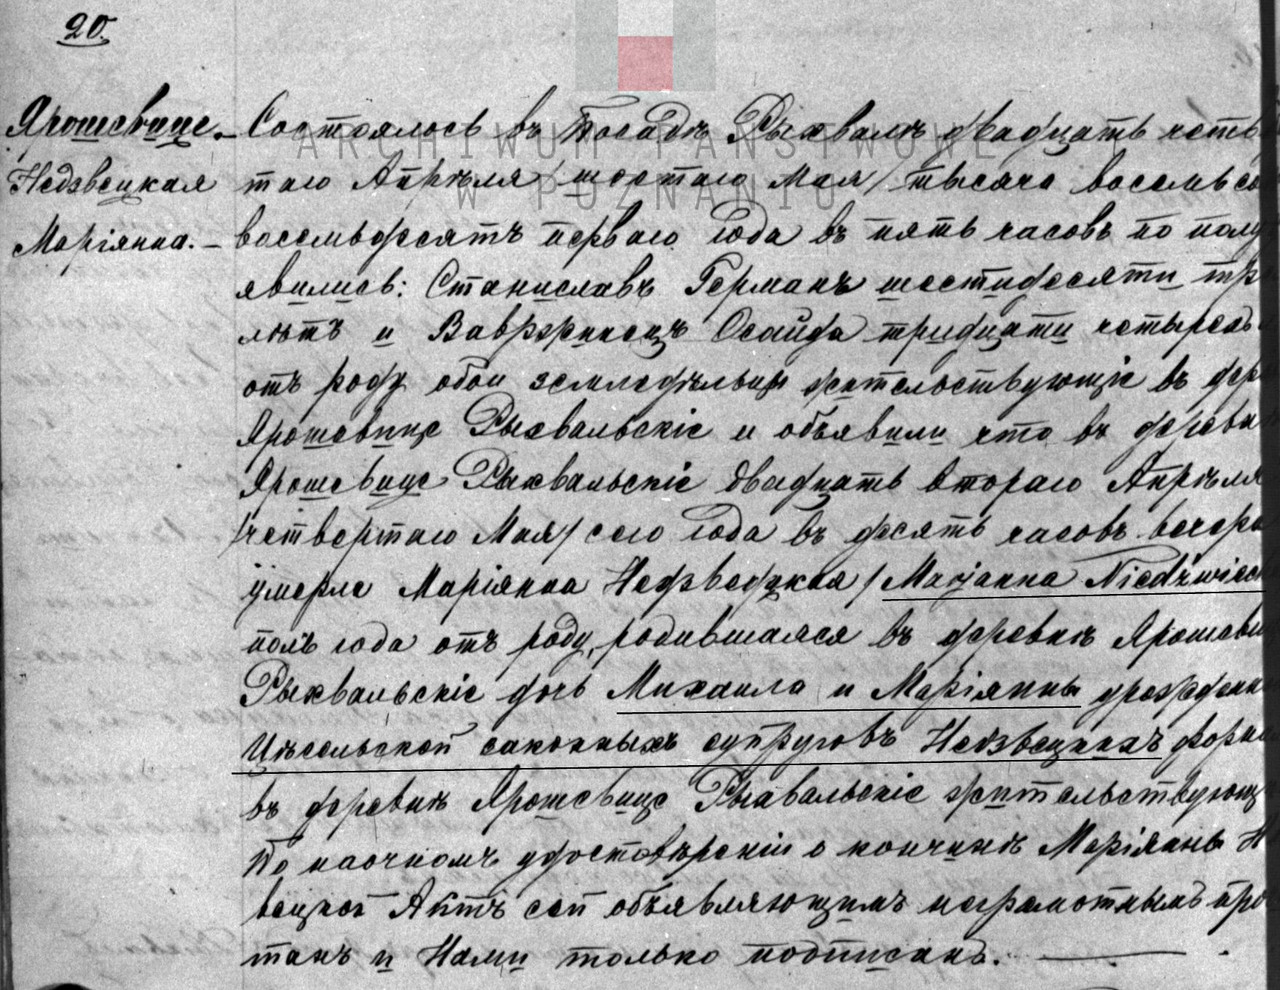 20.
Ярошевице
Недзвецкая
Маріянна.
ARCHIWUM PAŃSTWOWE
W POZNANIU
Состоялось въ Посадѣ Рыхвалѣ двадцать четвер
таго Апрѣля /шестаго Мая/ тысяча восемьсотъ
восемьдесятъ перваго года въ пять часовъ по полу
явились: Станиславъ Германъ шестидесяти трехъ
лѣтъ и Вавржинецъ Осайда тридцати четырехъ
отъ роду обои земледѣльцы жительствующіе въ дере
Ярошевице Рыхвальскіе и объявили что въ деревнѣ
Ярошевице Рыхвальскіе двадцать втораго Апрѣля
/четвертаго Мая/ сего года въ десять часовъ вечера
умерла Маріянна Недзведзкая /Maryanna Niedźwiec
полъ года отъ роду, родившаяся въ деревнѣ Ярошеви
Рыхвальскіе дочь Михаила и Маріянны урожденн
Цѣсельской законныхъ супруговъ Недзвецкихъ
въ деревнѣ Ярошевице Рыхвальскіе жительствующ
По наочномъ удостовѣреніи о кончинѣ Маріянны Н
вецкой Актъ сей объявляющимъ неграмотнымъ про
танъ и Нами только подписанъ.